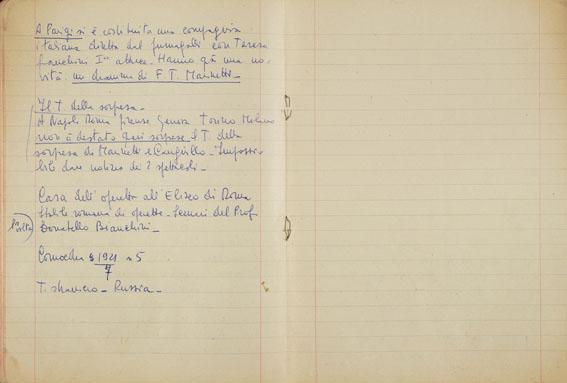 A Parigi si è costituita una compagnia
italiana diretta dal Fumagalli con Teresa
Franchini Iª attrice. Hanno già una no-
vità: un dramma di F. T. Marinetti -
Il T. della sorpresa -
A Napoli Roma Firenze Genova Torino Milano
non à destato quasi sorprese il T. della
sorpresa di Marinetti e Cangiullo - Impossi-
bile dare notizia dei 2 spettacoli -
Casa dell' operetta all' Eliseo di Roma
Stabile romana di operette -
del Prof.
(1ª volta) Donatello Bianchini -
Comoedia 1921 n 5
7
T. straniero - Russia -